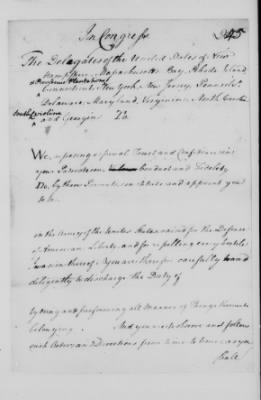 In Congress 45
The Delegates of the United States of New
Hampshire, Massachusetts Bay, Rhode Island
& Providence Plantations
Connecticut, New York, New Jersey, Pennsylv.
Delaware, Maryland, Virginia, North Carolina
South Carolina
and Georgia To
We reposing especial Trust and Confidence in
your Patriotism, Conduct and Fidelity
Do, by these Presents constitute and appoint you
to be
in the Army of the United States raised for the Defence
of American Liberty and for repelling every hostile
Invasion thereof. You are therefore carefully to and
diligently to discharge the Duty of
by doing and performing all Manner of Things thereunto
belonging. And you are to observe and follow
such Orders, and Directions from time to time as you
shall